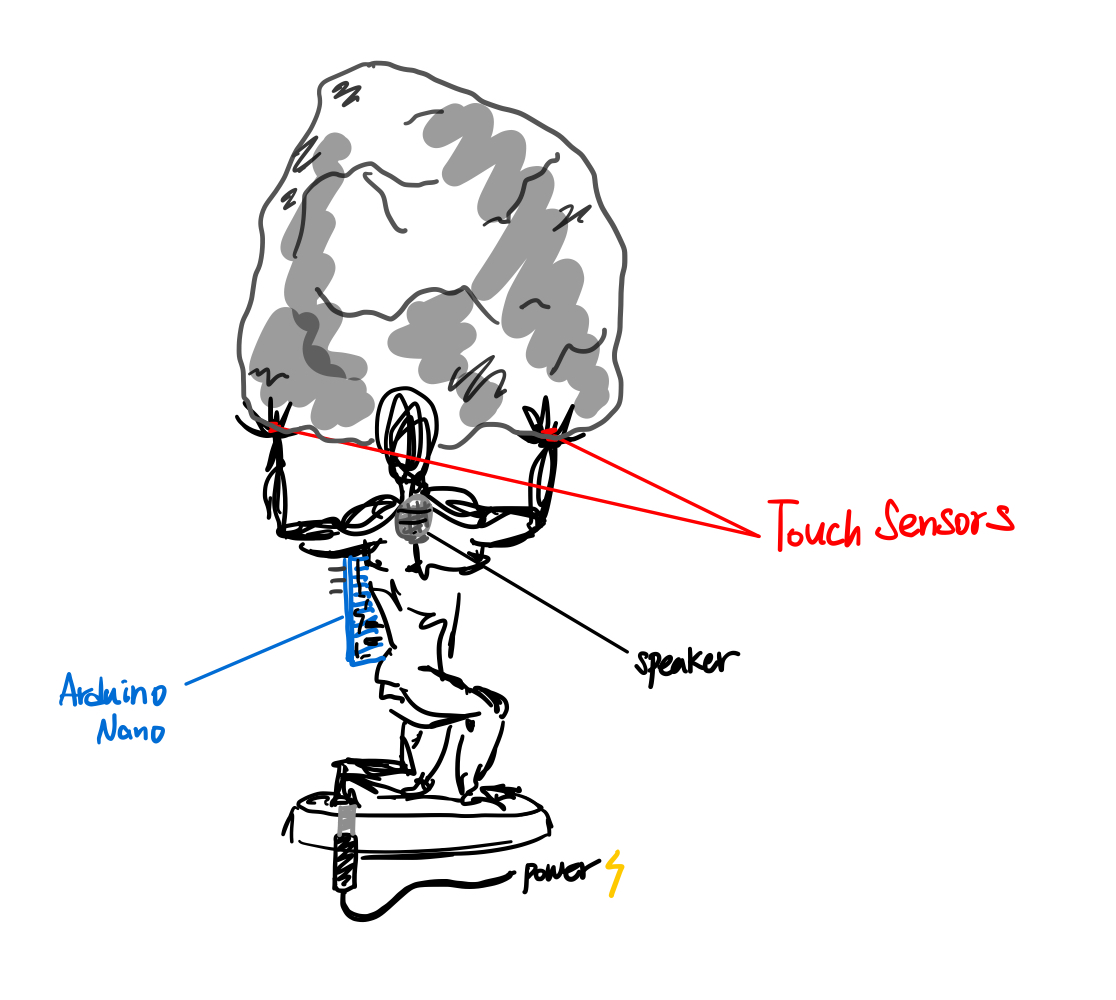 Touch Sensors
speaker
Arduino
Nano
power